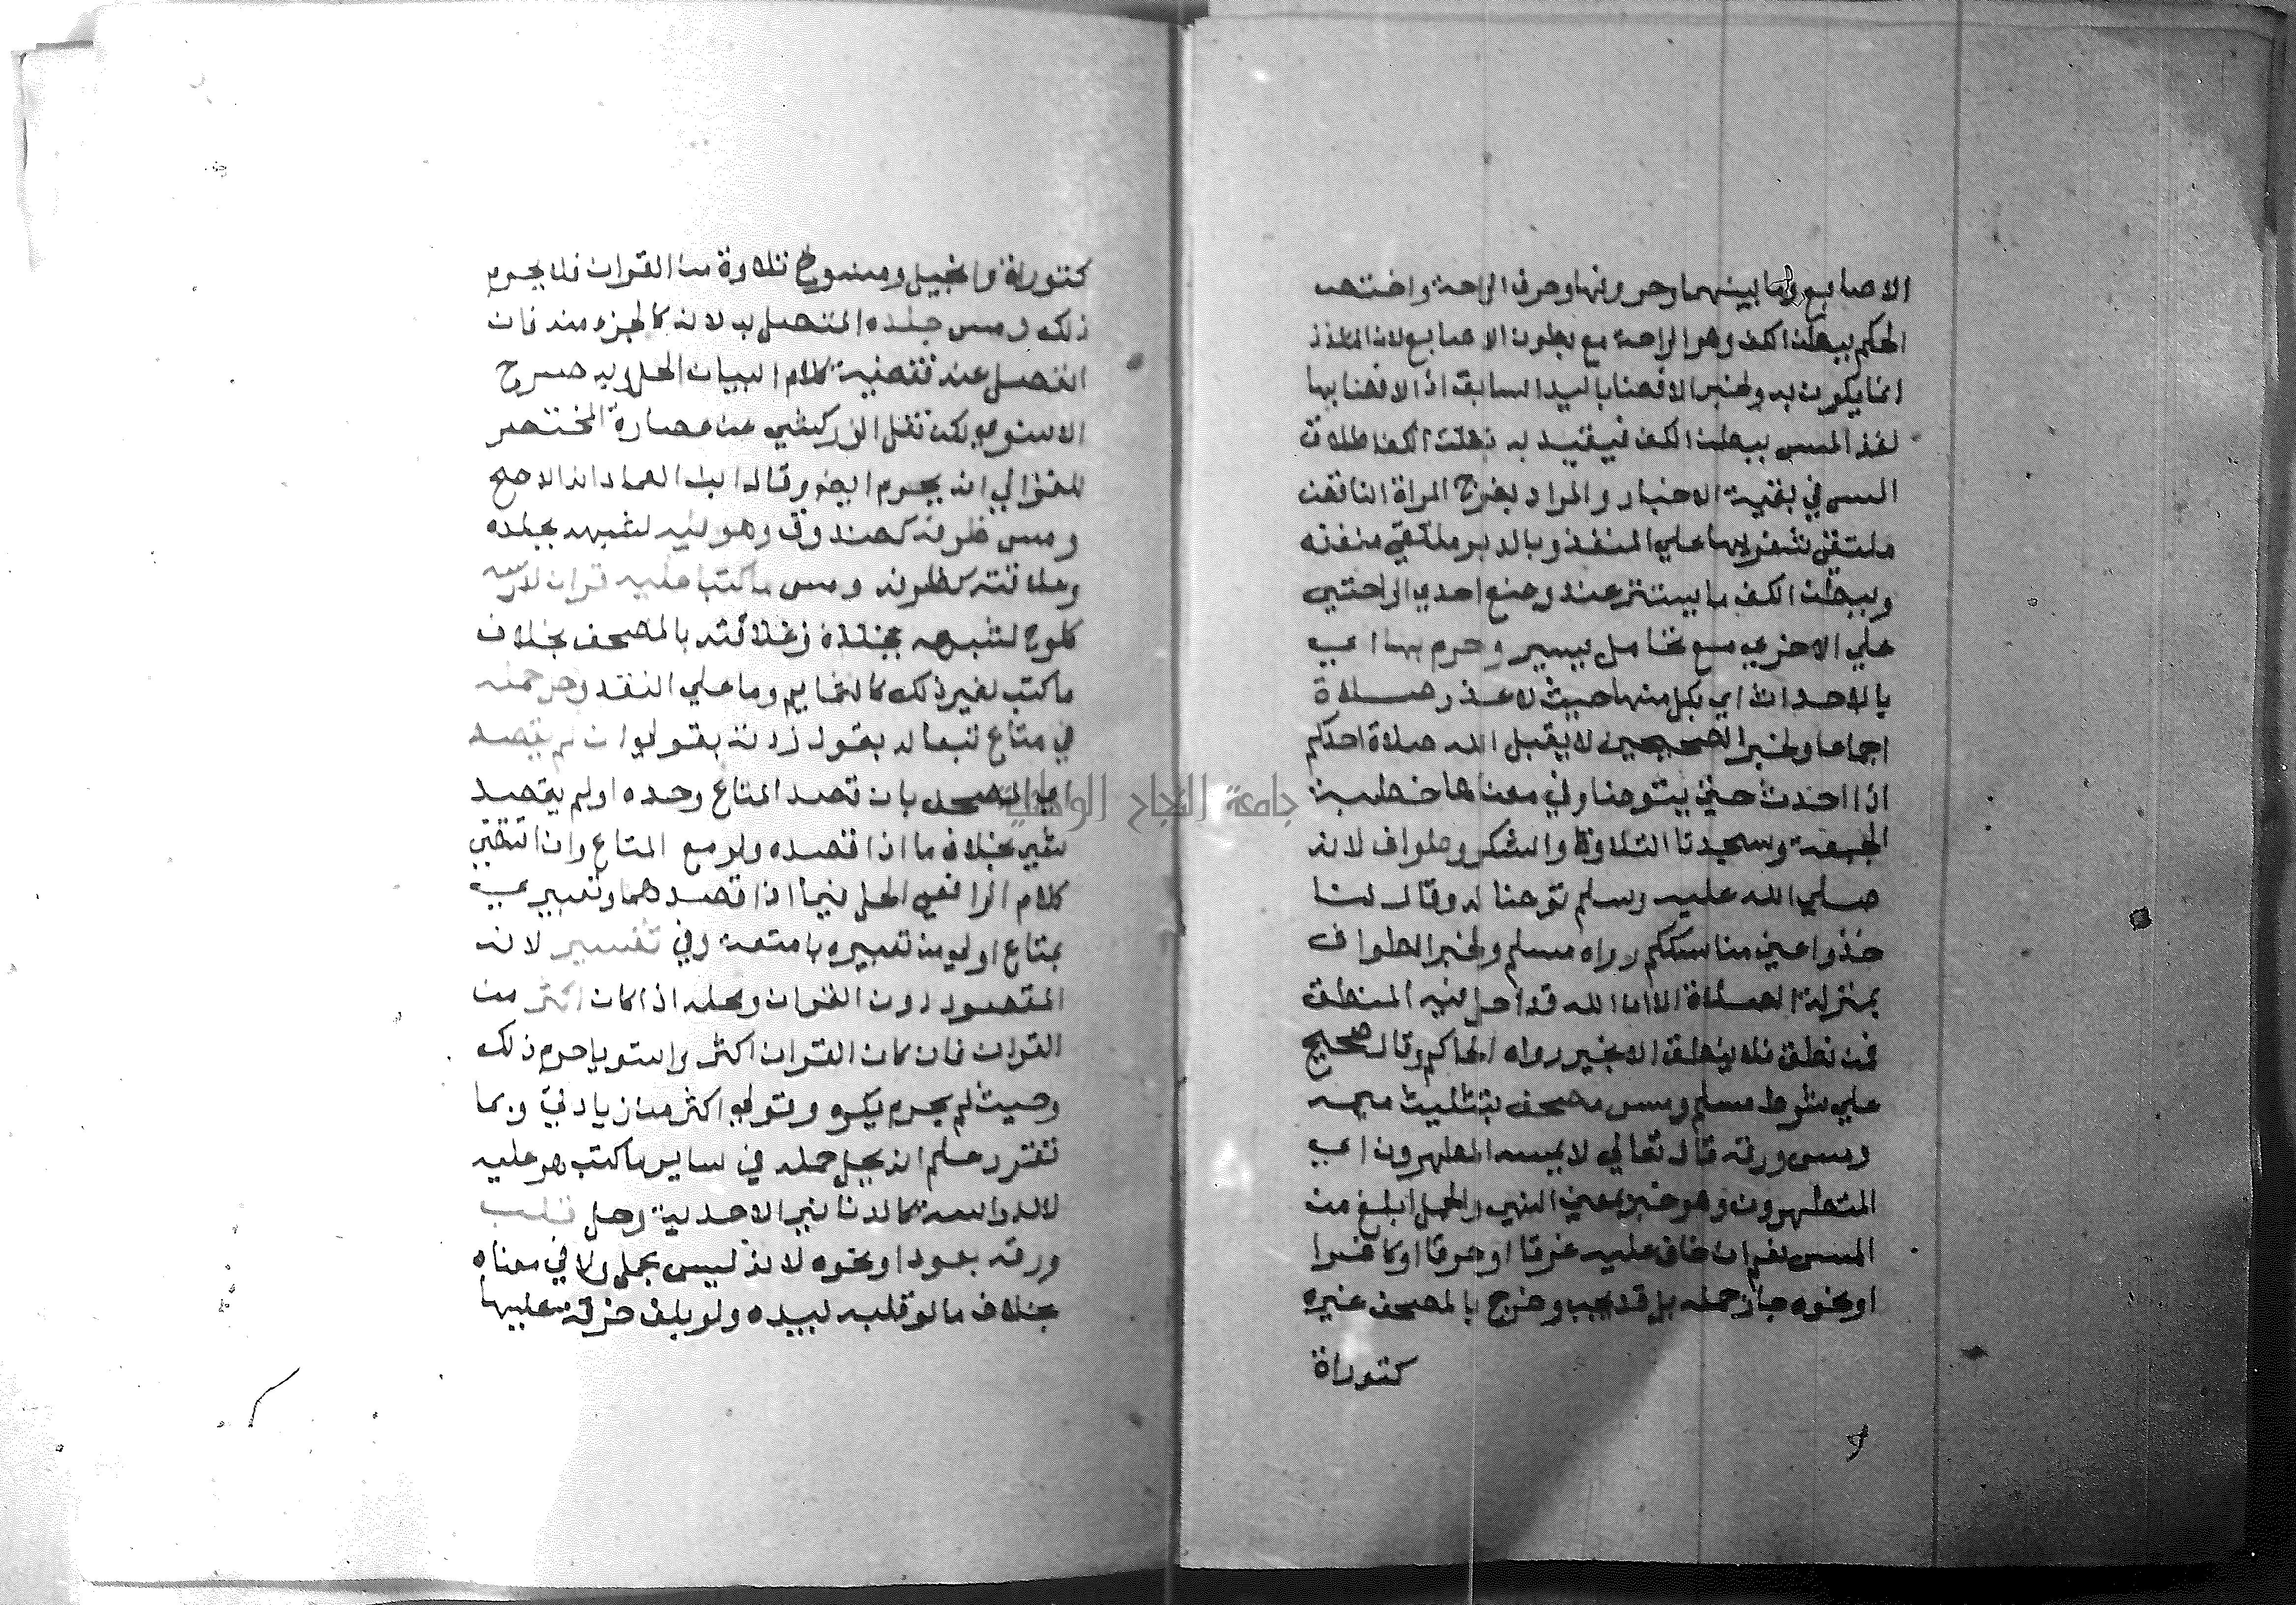 الاصابع وما بينهما وحروفها وحرف الراحة واختص
الحكم ببطن الكف وهو الراحة مع بطون الاصابع لان التلذذ
انما يكون به ولخبر الافضا باليد السابق اذ الافضا بها
لغة المس ببطن الكف فيتقيد به اطلاق
المس في بقية الاخبار والمراد بفرج المراة الناقض
ملتقى شفريها علي المنفذ وبالدبر ملتقي منفذه
وببطن الكف ما يستتر عند وضع احدي الراحتين
علي الاخري مع تحامل يسير وحرم بها اي
بالاحداث اي بكل منها حيث لا عذر صلاة
اجماعا ولخبر الصحيحين لا يقبل الله صلاة احدكم
اذا احدث حتي يتوضا وفي معناها خطبة
الجمعة وسجدتا التلاوة والشكر وطواف لانه
صلي الله عليه وسلم توضا له وقال لنا
خذوا عني مناسككم رواه مسلم ولخبر الطواف
بمنزلة الصلاة الا ان الله قد احل فيه المنطق
فمن نطق فلا ينطق الا بخير رواه الحاكم وقال صحيح
علي شرط مسلم ومس مصحف بتثليث ميمه
ومس ورقه قال تعالي لا يمسه الا المطهرون اي
المتطهرون وهو خبر بمعني النهي والحمل ابلغ من
المس نعم ان خاف عليه غرقا او حرقا او كافرا
او نحوه جاز حمله بل قد يجب وخرج بالمصحف غيره
كتوراة
كتوراة وانجيل ومنسوخ تلاوة من القران فلا يحرم
ذلك ومس جلده المتصل به لانه كالجزء منه فان
انفصل عنه فقضية كلام البيان الحل وبه صرح
الاسنوي لكن نقل الزركشي عن عصارة المختصر
للغزالي انه يحرم ايضا وقال ابن العماد انه الاصح
ومس ظرفه كصندوق وهو فيه لشبهه بجلده
وعلاقته كظرفه ومس ما كتب عليه قران لدرسه
كلوح لشبهه بالمصحف بخلاف
ما كتب لغير ذلك كالتمايم وما علي النقد وحل حمله
في متاع تبعا له بقولي ان لم يقصد
اي المصحف بان قصد المتاع وحده او لم يقصد
شي بخلاف ما اذا قصده ولو مع المتاع وان اقتضي
كلام الرافعي الحل فيما اذا قصدهما وتعبيري
بمتاع اولي من تعبيره بامتعة وفي تفسير لانه
المقصود دون القران ومحله اذا كان اكثر من
القران فان كان القران اكثر او استويا حرم ذلك
وحيث لم يحرم يكره وقولي اكثر من زيادتي وبما
تقرر علم انه يحل حمله في ساير ما كتب هو عليه
لا لدراسة كالدنانير الاحدية وحل قلب
ورقه بعود او نحوه لانه ليس بحمل ولا في معناه
بخلاف ما لو قلبه بيده ولو بلف خرقة عليها
جامعة النجاح الوطنية